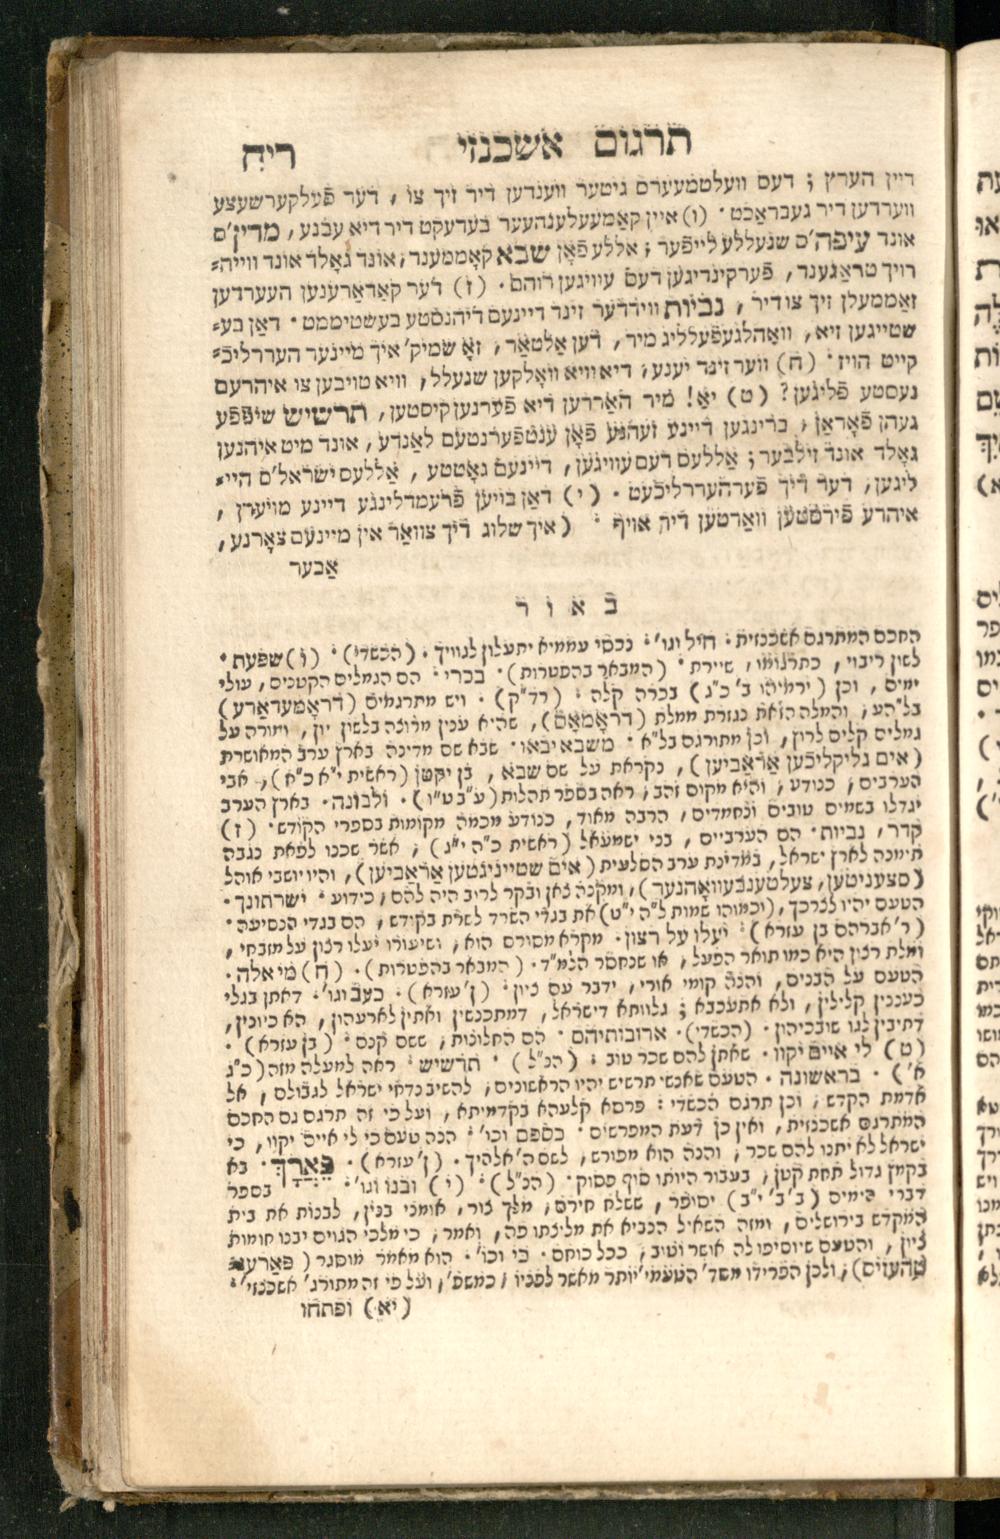 תרגום אשכנזי
ריח
דיין הערץ ; דעם וועלטמעערס גיטער ווענדען דיר זיך צו , דער פֿעלקערשעצע
ווערדען דיר געבראַכט · (ו) איין קאַמעעלענהעער בעדעקט דיר דיא עבנע , מדין'ס
אונד עיפה'ס שנעללע לייפֿער ; אַללע פֿאָן שבא קאָממענד ; אונד גאָלד אונד ווייה=
רויך טראַגענד , פֿערקינדיגען דעס עוויגען רוהם · (ז) דער קאַדאַרענען העערדען
זאַממעלן זיך צו דיר , נביות ווידדער זינד דיינעם דיהנסטע בעשטיממט · דאַן בע=
שטייגען זיא , וואָהלגעפֿעלליג מיר , דען אַלטאַר , זאָ שמיק' איך מיינער העררליכֿ=
קייט הויז · (ח) ווער זינד יענע , דיא וויא וואָלקען שנעלל , וויא טויבען צו איהרעם
נעסטע פֿליגען ? (ט) יאַ ! מיר האַררען דיא פֿערנען קיסטען , תרשיש שיפֿפֿע
געהן פֿאָראַן , ברינגען דיינע זעהנע פֿאָן ענטפֿערנטעם לאַנדע , אונד מיט איהנען
גאָלד אונד זילבער ; אַללעס דעס עוויגען , דיינעס גאָטטע , אַללעס ישראל'ס היי=
ליגען , דער דיך פֿערהעררליכֿעט · (י) דאַן בויען פֿרעמדלינגע דיינע מויערן ,
איהרע פֿירסטען וואַרטען דיר אויף · (איך שלוג דיך צוואַר אין מיינעם צאָרנע ,
אַבער
באור
החכם המתרגם אשכנזית · חיל וגו' · נכסי עממיא יתעלון לגוויך · (הכשדי) · (ו) שפעת ·
לשון ריבוי , כתרגומו , שיירת · (המבאר בהפטרות) · בכרי · הם הגמלים הקטנים , עולי
ימים , וכן (ירמיהו ב' כ"ג) בכרה קלה · (רד"ק) · ויש מתרגמים (דראָמעדאַרע)
בל"הע , והמלה הזאת נגזרת ממלת (דראָמאָס) , שהיא ענין מרוצה בלשון יון , ויורה על
גמלים קלים לרוץ , וכן מתורגם בל"א · משבא יבאו · שבא שם מדינה בארץ ערב המאושרת
(אים גליקליכֿען אַראַביען) , נקראת על שם שבא , בן יקטן (ראשית י"א כ"א) , אבי
הערבים , כנודע , והיא מקום זהב , ראה בספר תהלות (ע"ב ט"ו) · ולבונה · בארץ הערב
יגדלו בשמים טובים ונחמדים , הרבה מאוד , כנודע מכמה מקומות בספרי הקודש · (ז)
קדר , נביות · הם הערביים , בני ישמעאל (ראשית כ"ה י"ג) , אשר שכנו לפאת נגבה
תימנה לארץ ישראל , במדינת ערב הסלעית (אים שטייניגטען אַראַביען) , והיו יושבי אוהל
(סצעניטען , צעלטענבעוואָהנער) , ומקנה צאן ובקר לרוב היה להם , כידוע · ישרתונך ·
הטעם יהיו לצרכך , (וכמוהו שמות ל"ה י"ט) את בגדי השרד לשרת בקודש , הם בגדי הנסיעה ·
(ר' אברהם בן עזרא) · יעלו על רצון · מקרא מסורס הוא , ושיעורו יעלו רצון על מזבחי ,
ומלת רצון היא כמו תואר הפעל , או שנחסר הלמ"ד · (המבאר בהפטרות) · (ח) מי אלה ·
הטעם על הבנים , והנה קומי אורי , ידבר עם ציון · (ן' עזרא) · כעב וגו' · דאתן בגלי
כעננין קלילין , ולא אתעכבא ; גלוותא דישראל , דמתכנשין ואתין לארעהון , הא כיונין ,
דתיבין לגו שובכיהון · (הכשדי) · ארובותיהם · הם החלונות , ששם קנם · (בן עזרא) ·
(ט) לי איים יקוו · שאתן להם שכר טוב · (הנ"ל) · תרשיש · ראה למעלה מזה (כ"ג
א') · בראשונה · הטעם שאנשי תרשיש יהיו הראשונים , להשיב נדחי ישראל לגבולם , אל
אדמת הקדש , וכן תרגם הכשדי : פרסא קלעהא בקדמיתא , ועל פי זה תרגם גם החכם
המתרגם אשכנזית , ואין כן דעת המפרשים · כספם וכו' · הנה טעם כי לי איים יקוו , כי
ישראל לא יתנו להם שכר , והנה הוא מפורש , לשם ה' אלהיך · (ן' עזרא) · פֵּאֲרָךְ · בא
בקמץ גדול תחת קטן , בעבור היותו סוף פסוק · (הנ"ל) · (י) ובנו וגו' · בספר
דברי הימים (ב' ב' י"ב) יסופר , ששלח חירם , מלך צור , אומני בנין , לבנות את בית
המקדש בירושלים , ומזה השאיל הנביא את מליצתו פה , ואמר , כי מלכי הגוים יבנו חומות
ציון , והטעם שיוסיפו לה אושר וטוב , ככל כוחם · כי וכו' · הוא מאמר מוסגר (פּאַרענ=
טהעזיס) , ולכן הפרידו משד' הטעמי' יותר מאשר לפניו , כמשפ' , ועל פי זה מתורג' אשכנזי' ·
(יא) ופתחו